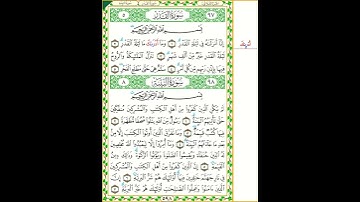 ٩٧ سُورَةُ القَدْرِ ٥
بِسْمِ اللَّهِ الرَّحْمَٰنِ الرَّحِيمِ
إِنَّا أَنزَلْنَاهُ فِي لَيْلَةِ الْقَدْرِ ١ وَمَا أَدْرَىٰكَ مَا لَيْلَةُ الْقَدْرِ ٢
أَدْرَىٰكَ
لَيْلَةُ الْقَدْرِ خَيْرٌ مِّنْ أَلْفِ شَهْرٍ ٣ تَنَزَّلُ الْمَلَٰٓئِكَةُ وَالرُّوحُ
فِيهَا بِإِذْنِ رَبِّهِم مِّن كُلِّ أَمْرٍ ٤ سَلَٰمٌ هِيَ حَتَّىٰ مَطْلَعِ الْفَجْرِ ٥
٩٨ سُورَةُ البَيِّنَةِ ٨
بِسْمِ اللَّهِ الرَّحْمَٰنِ الرَّحِيمِ
لَمْ يَكُنِ الَّذِينَ كَفَرُوا مِنْ أَهْلِ الْكِتَٰبِ وَالْمُشْرِكِينَ مُنفَكِّينَ
حَتَّىٰ تَأْتِيَهُمُ الْبَيِّنَةُ ١ رَسُولٌ مِّنَ اللَّهِ يَتْلُوا صُحُفًا مُّطَهَّرَةً ٢
فِيهَا كُتُبٌ قَيِّمَةٌ ٣ وَمَا تَفَرَّقَ الَّذِينَ أُوتُوا الْكِتَٰبَ إِلَّا مِن
بَعْدِ مَا جَآءَتْهُمُ الْبَيِّنَةُ ٤ وَمَآ أُمِرُوٓا إِلَّا لِيَعْبُدُوا اللَّهَ مُخْلِصِينَ
لَهُ الدِّينَ حُنَفَآءَ وَيُقِيمُوا الصَّلَوٰةَ وَيُؤْتُوا الزَّكَوٰةَ وَذَٰلِكَ دِينُ
الْقَيِّمَةِ ٥ إِنَّ الَّذِينَ كَفَرُوا مِنْ أَهْلِ الْكِتَٰبِ وَالْمُشْرِكِينَ
فِي نَارِ جَهَنَّمَ خَٰلِدِينَ فِيهَآ أُولَٰٓئِكَ هُمْ شَرُّ الْبَرِيَّةِ ٦ إِنَّ
الَّذِينَ ءَامَنُوا وَعَمِلُوا الصَّٰلِحَٰتِ أُولَٰٓئِكَ هُمْ خَيْرُ الْبَرِيَّةِ ٧
٥٩٨